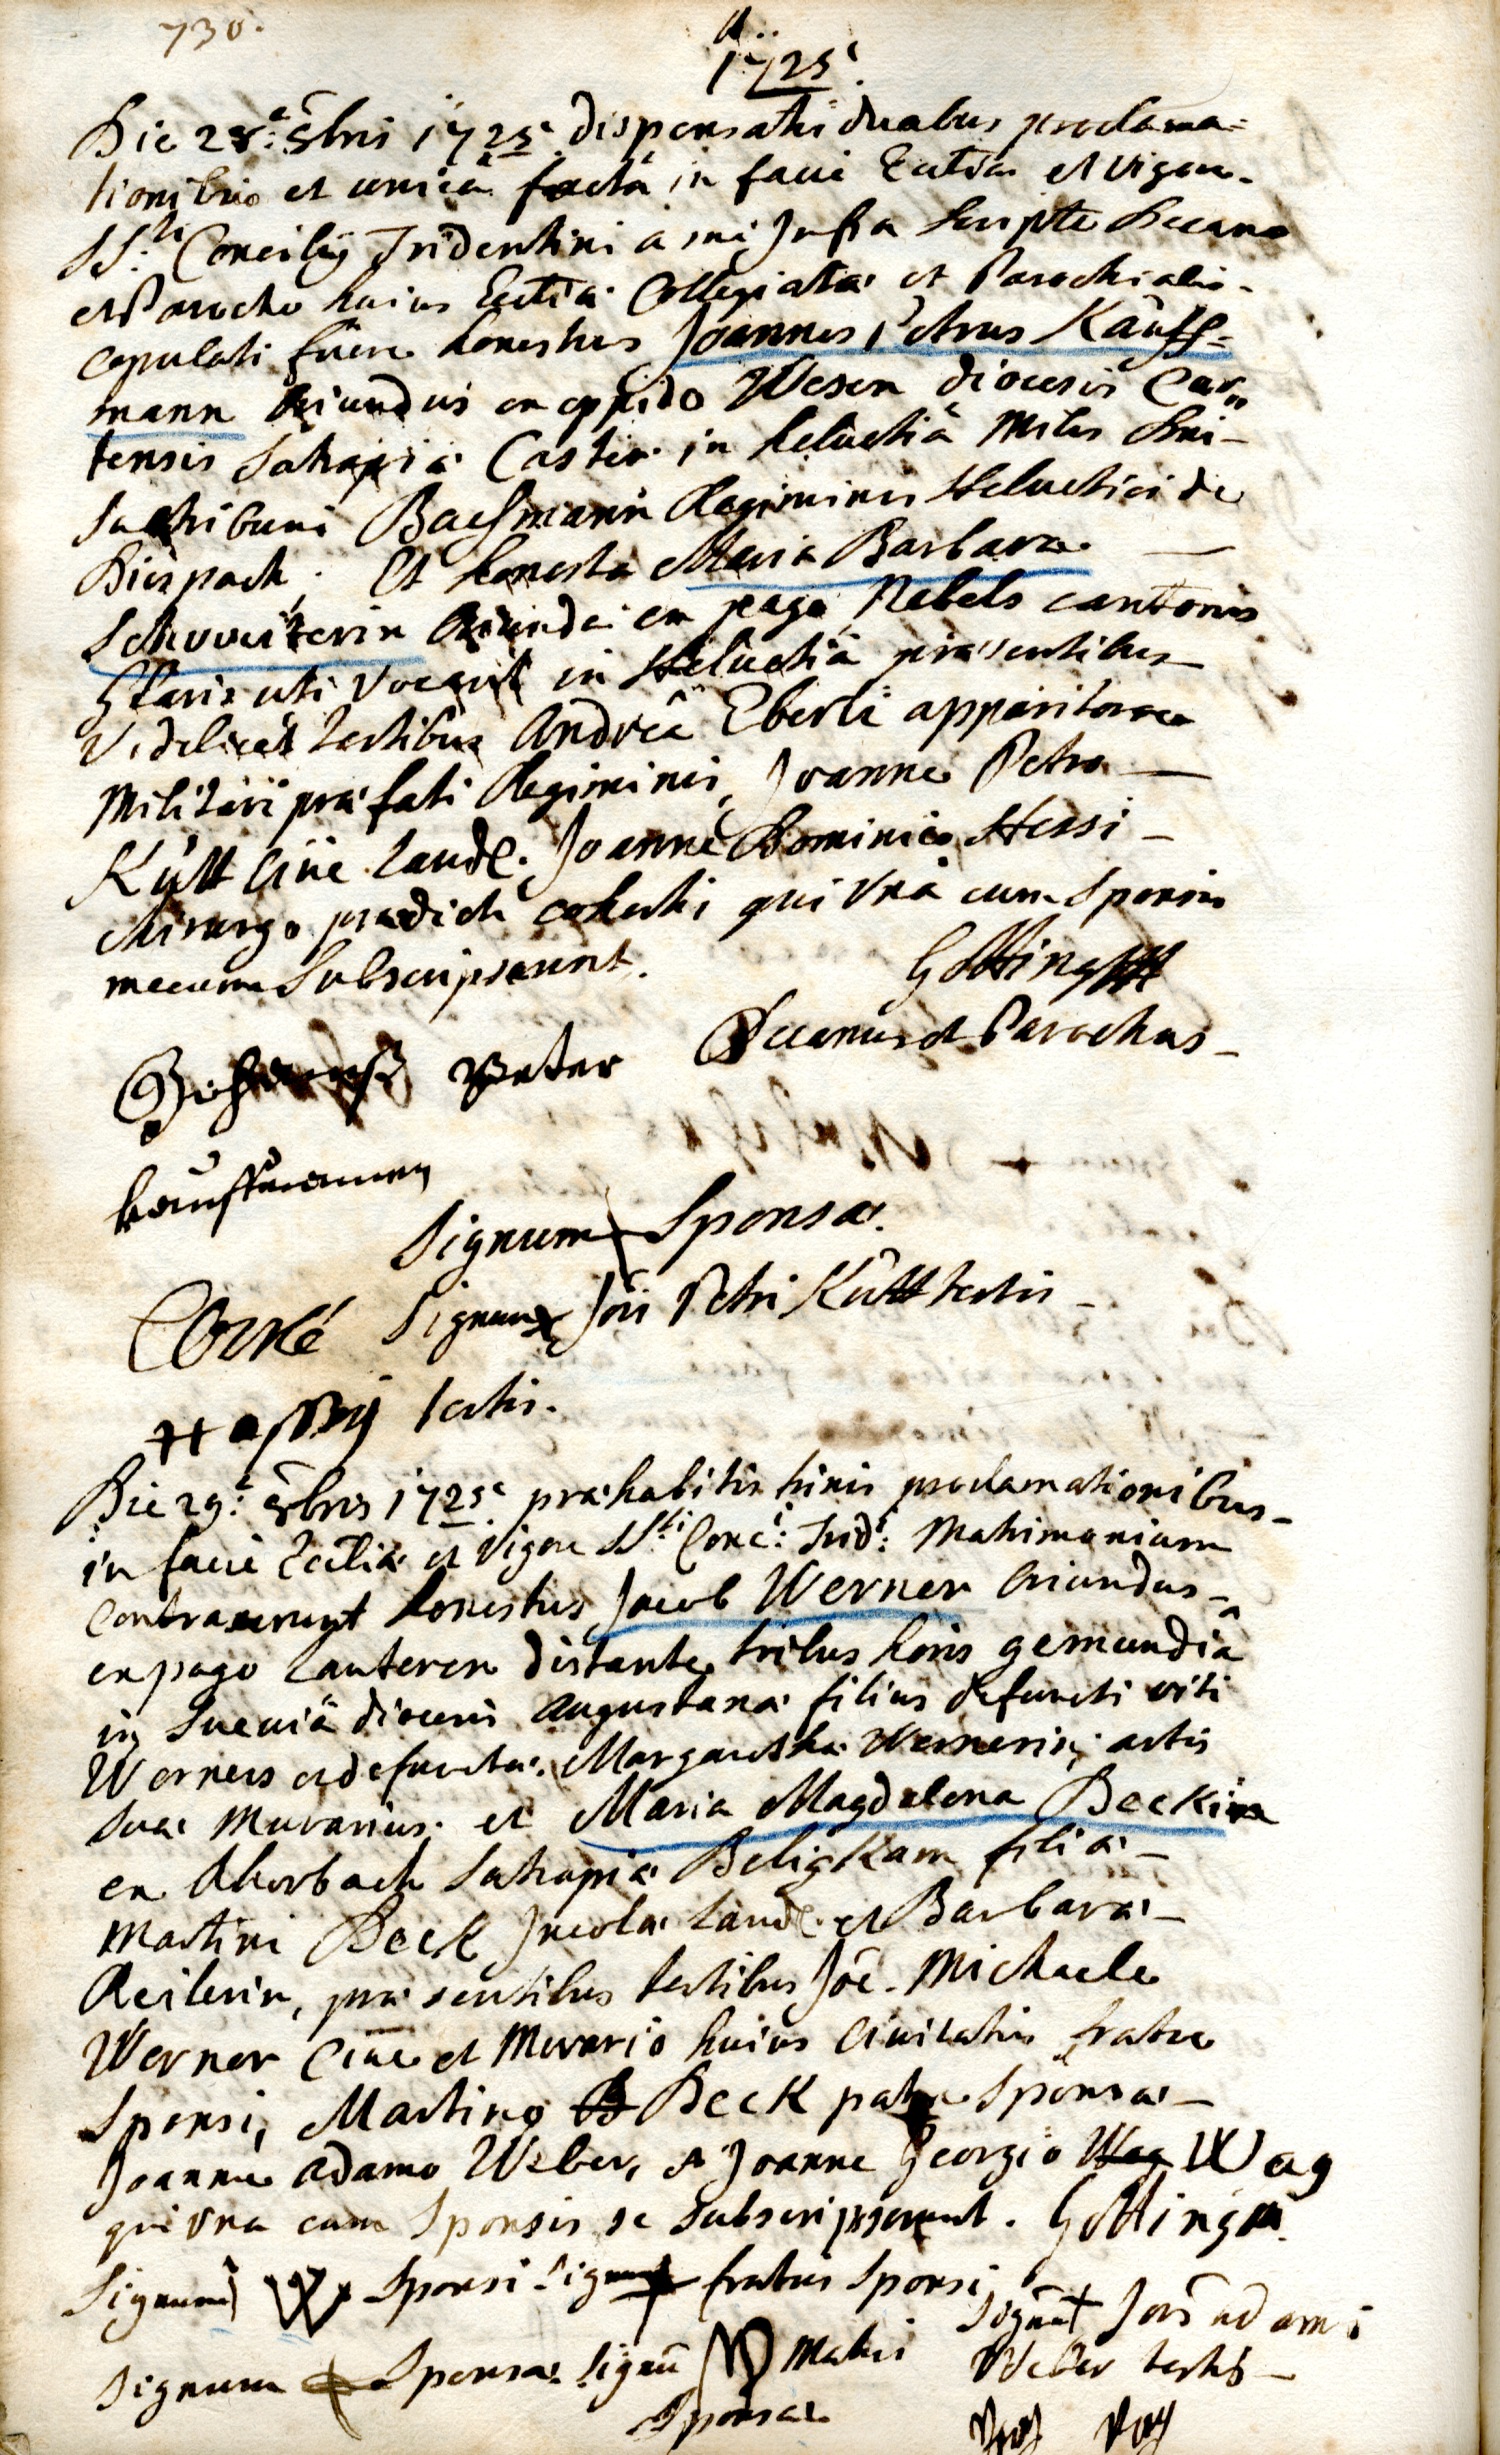 730.
A..
1725.
Die 28.a 8bris 1725. dispensati duabus proclama=
tionibus et unicâ factâ in facie Ecclīa et vigore
SS.ti Concilij Tridentini à me Infra Scripto Decano
et Parocho huius Ecclīa Collegiatæ et Parochialis
copulati fuere honestus Joannes Petrus Kauff=
mann Oriundus ex oppido Wesen diocesis
tensis Satrapiæ Caster in helvetiâ Miles
tribuni Bachmann Regiminis Helvetici de
Dièspach, et honesta Maria Barbara
Schwuiterin Oriunda ex pago Nebels cantonis
Glaris uti vocant in Helvetiâ præsentibus
videlicet testibus Andreâ Eberli apparitore
Militari præfati Regiminis, Joanne Petro
Kütt Cive Laud. Joanne Dominico Hessi
chirurgo prædictæ cohortis qui Vnà cum Sponsis
mecum Subscripserunt.
Göttingh
Decanus et Parochus
Johannes Peter
kauffmannen
Signum Sponsæ.
Signum Jōis Petri Kütt testis
Hassÿ testis.
Die 29.a 8bris 1725. præhabitis trinis proclamationibus
in facie Ecclīa et Vigore SS.ti Conc: Trid: Matrimonium
contraxerunt honestus Jacob Werner Oriundus
ex pago Lauteren distante tribus horis gemundiâ
in Sueuiâ diocesis augustanæ filius defuncti viti
Werners et defunctæ Margarethæ Wernerin, artis
suæ Murarius. et Maria Magdalena Beckin
ex Ahorbach Satrapiæ Beligkam filia
Martini Beck Incolæ Laud. et Barbaræ
Reilerin, præsentibus testibus Jōe. Michaele
Werner Cive et Murario huius Ciuitatis fratre
Sponsi, Martino B Beck patre Sponsæ
Joanne adamo Weber, et Joanne Georgio Wag Wag
qui vna cum Sponsis se subscripserunt. Göttingh
Signum W Sponsi Signum fratris Sponsi
Signū Jōis adami
Weber testis
Signum Sponsæ. Signū Matris
Sponsæ